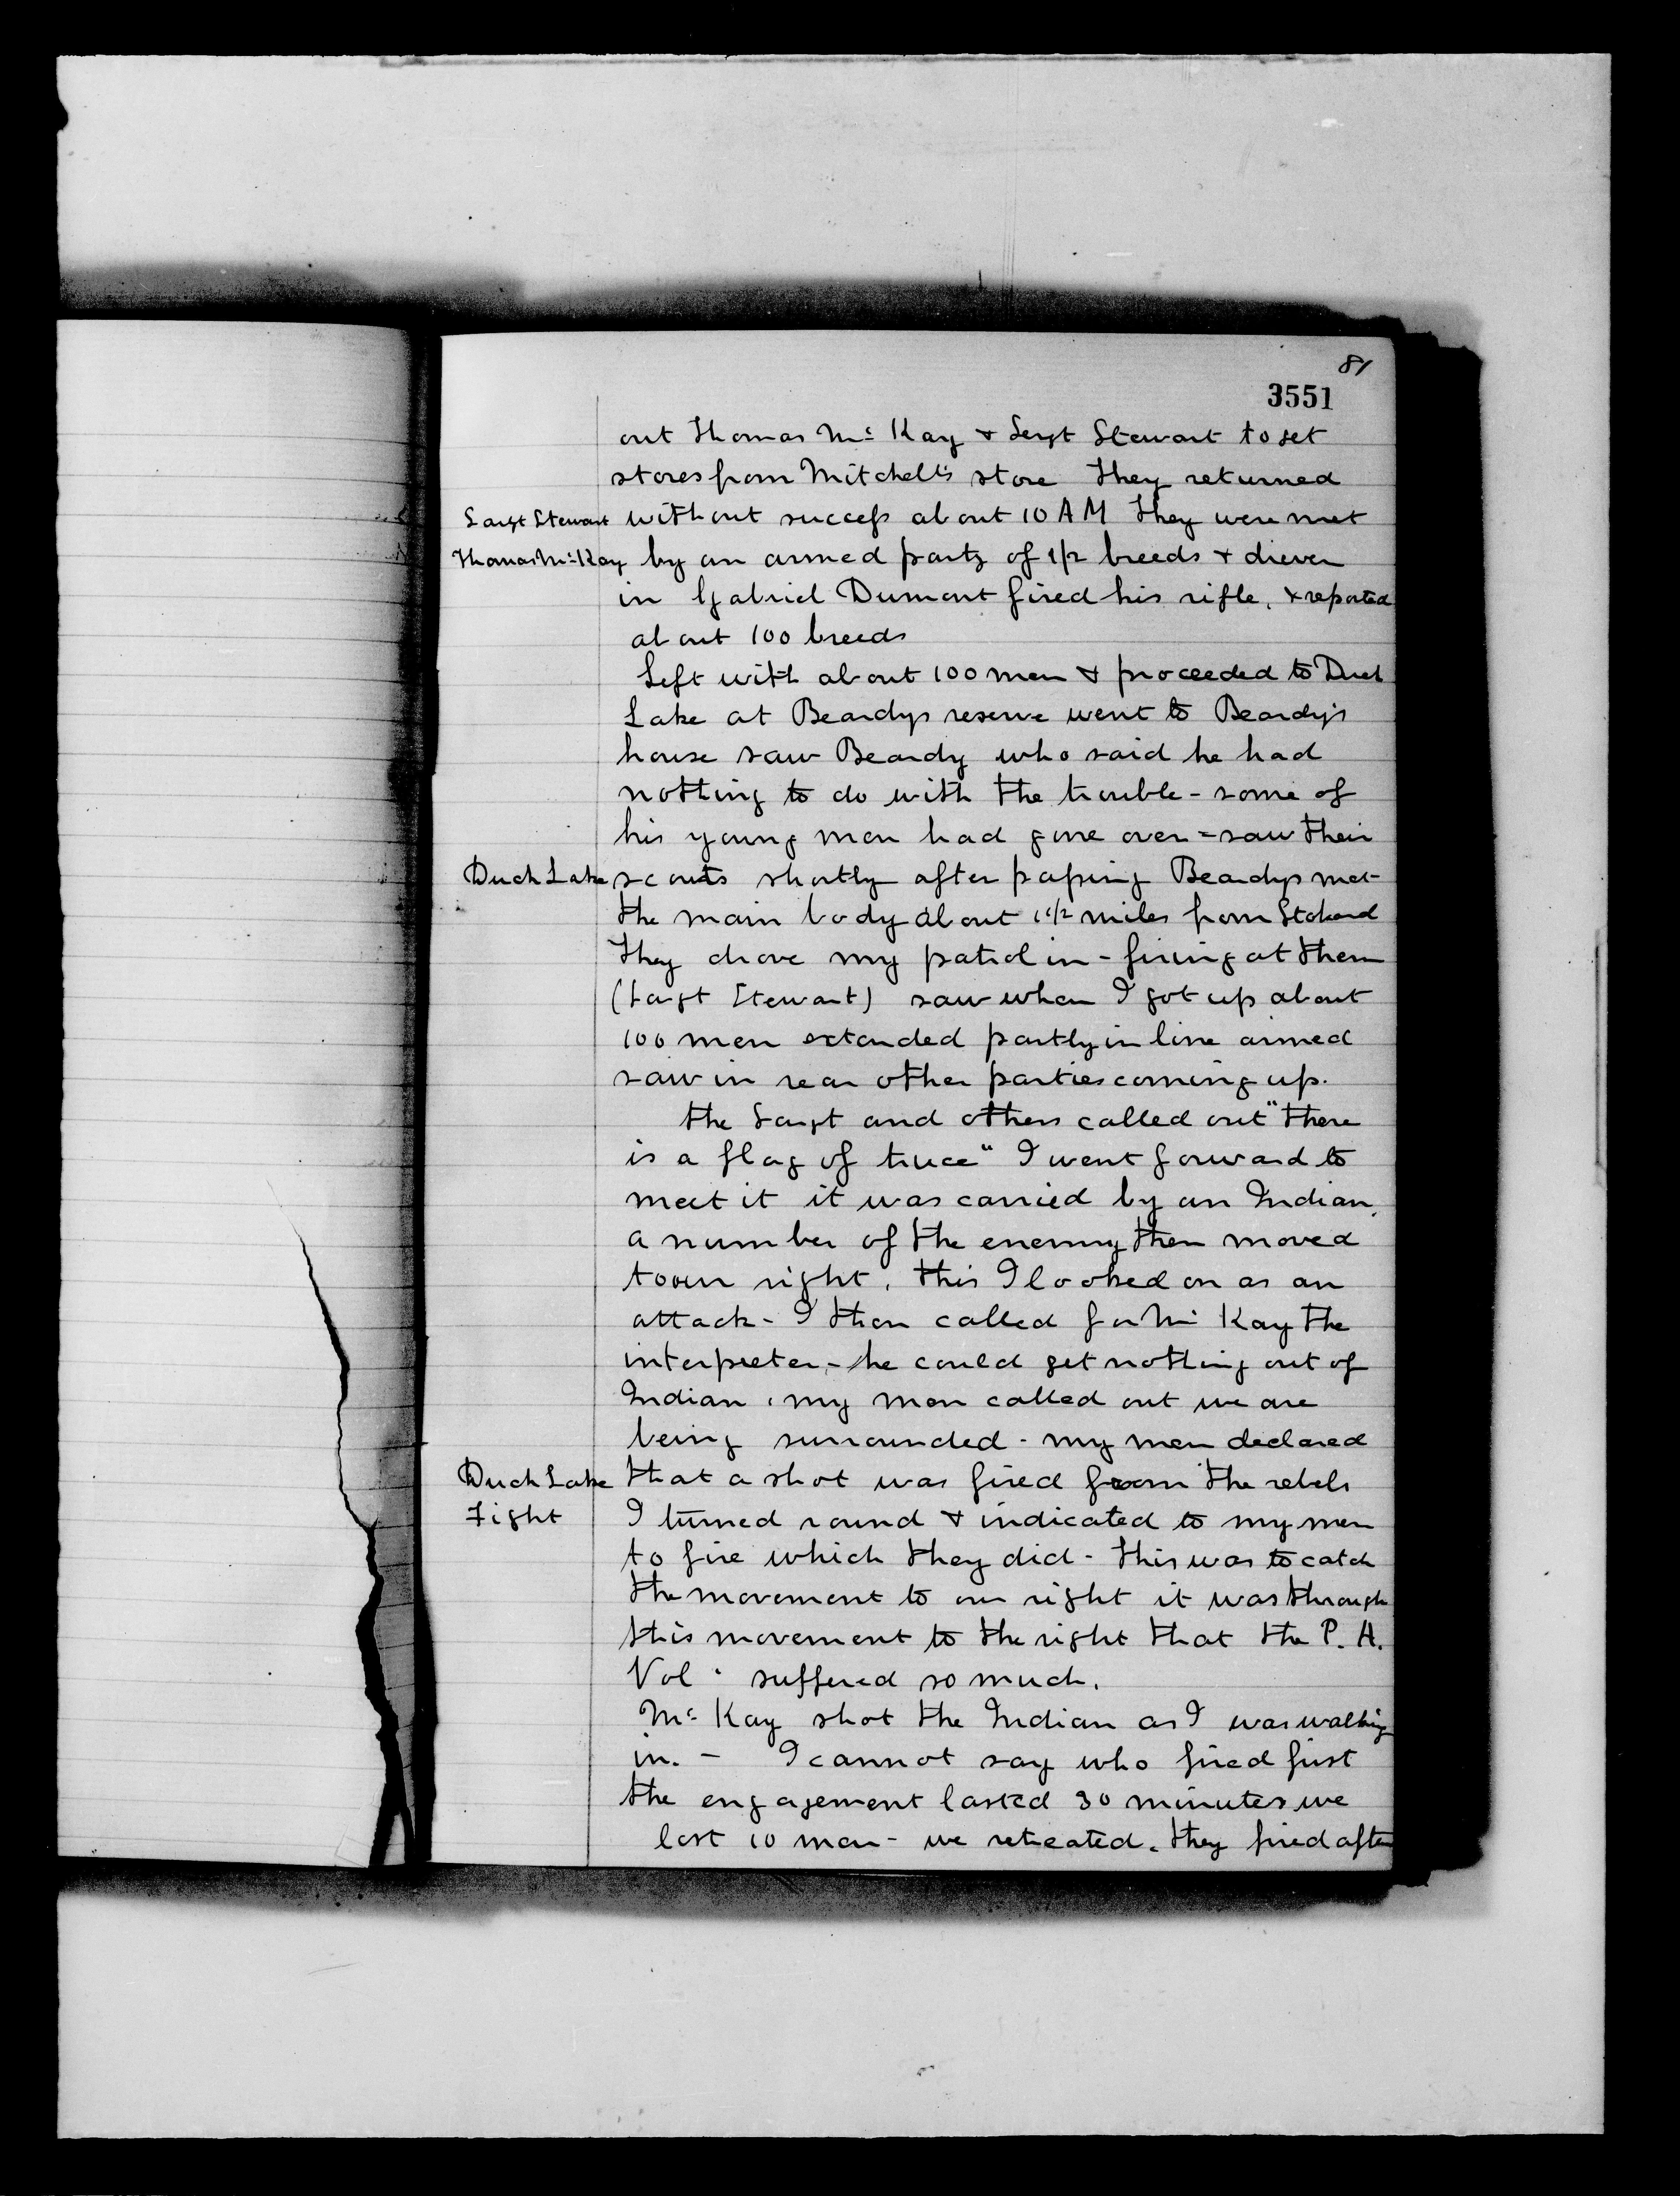 81
3551
out Thomas Mc Kay & Sergt Stewart to get
stores from Mitchell's store They returned
Sargt Stewart without success about 10 AM They were met
Thomas Mc Kay by an armed party of 1/2 breeds & driven
in Gabriel Dumont fired his rifle, & reported
about 100 breeds
Left with about 100 men & proceeded to Duck
Lake at Beardys reserve went to Beardy's
house saw Beardy who said he had
nothing to do with the trouble - some of
his young men had gone over = saw their
Duck Lake scouts shortly after passing Beardys met
the main body about 1 1/2 miles from Stobard
They drove my patrol in - firing at them
(Sargt Stewart) saw when I got up about
100 men extended partly in line armed
saw in rear other parties coming up.
the Sargt and others called out "there
is a flag of truce" I went forward to
meet it it was carried by an Indian,
a number of the enemy then moved
to our right, this I looked on as an
attack - I then called for Mc Kay the
interpreter, - he could get nothing out of
Indian, my men called out we are
being surrounded - my men declared
Duck Lake that a shot was fired from the rebels
Fight I turned round & indicated to my men
to fire which they did - this was to catch
the movement to our right it was through
this movement to the right that the P. A.
Vol. suffered so much.
Mc Kay shot the Indian as I was walking
in. - I cannot say who fired first
the engagement lasted 30 minutes we
lost 10 men - we retreated. they fired after